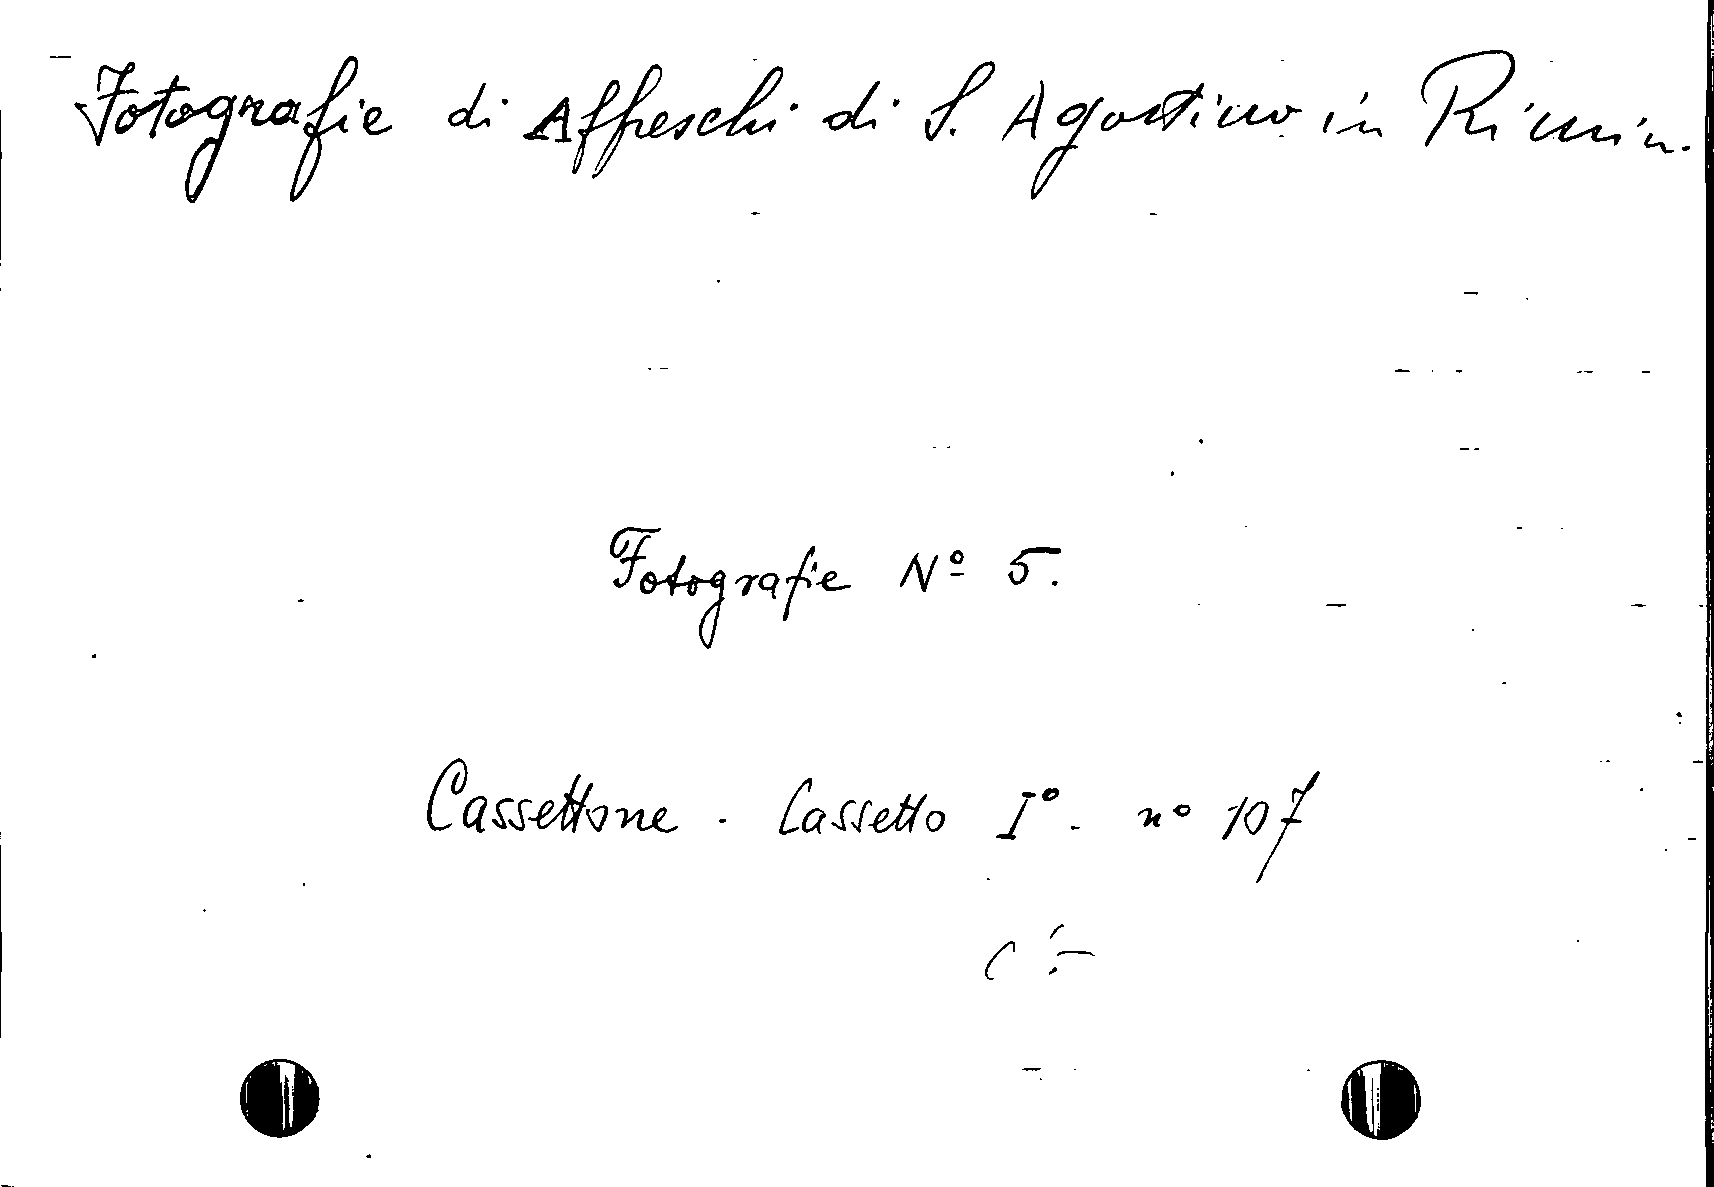 Fotografie di Affreschi di S. Agostino in Rimin.
Fotografie Nº 5.
Cassettone. Cassetto Iº. nº 107